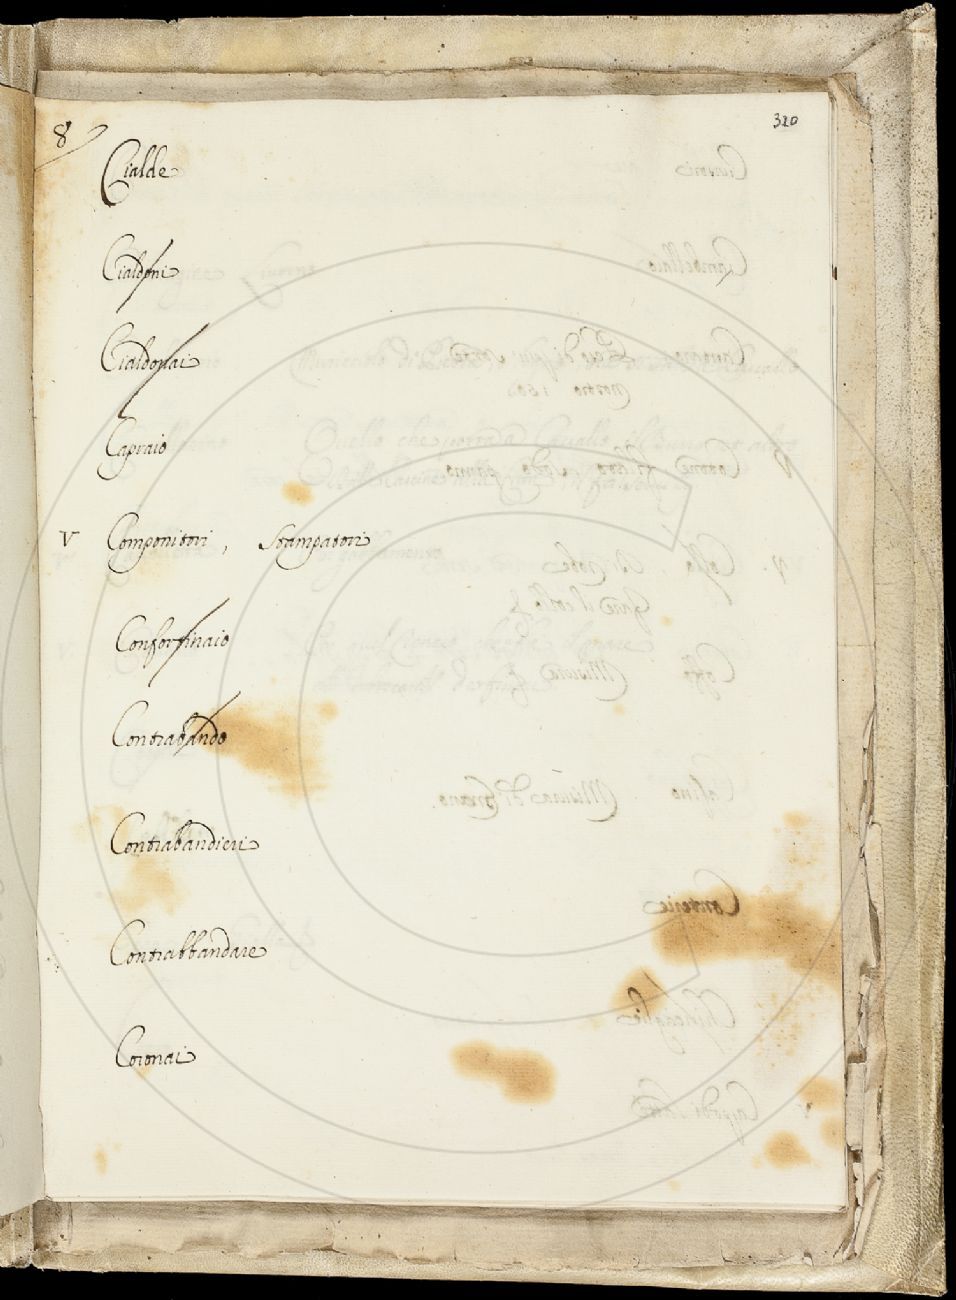 8 320
Cialde
Cialdoni
Cialdonai
Capraio
V Componitori, Stampatori
Confortinaio
Contrabando
Contrabandieri
Contrabbandare
Coronai